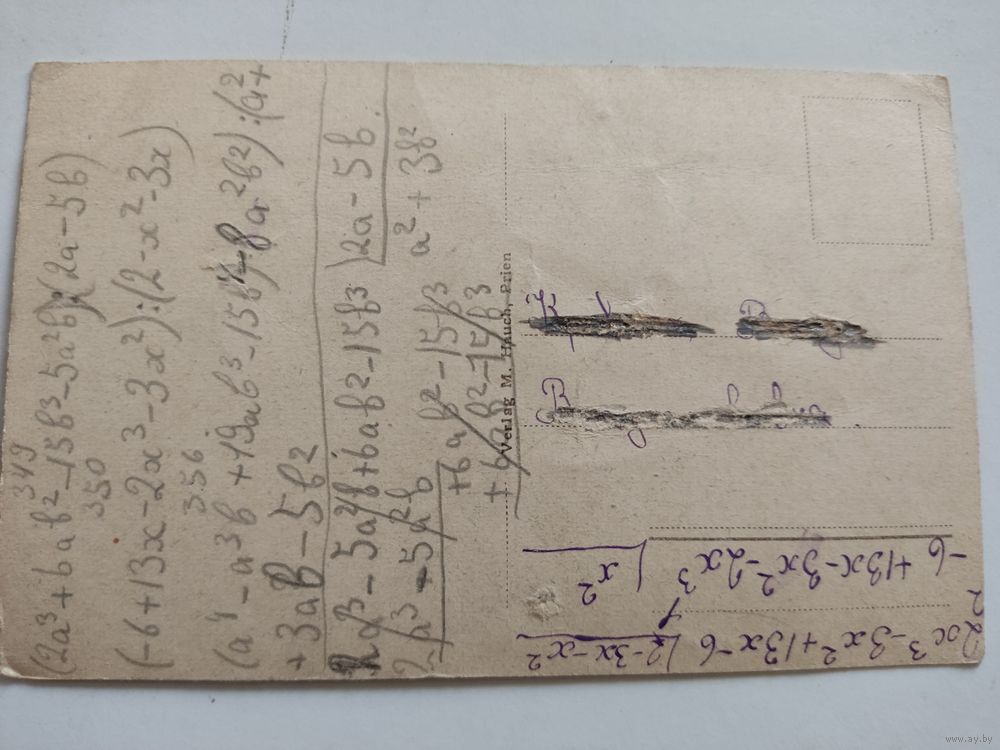 349
(2a³+6ab²-15b³-5a²b):(2a-5b)
350
(-6+13x-2x³-3x²):(2-x²-3x)
356
(a⁴-a³b+19ab³-15b⁴-8a²b²):(a²+
+3ab-5b²
2a³-5a²b+6ab²-15b³)2a-5b
2a³-5a²b a²+3b²
+6ab²-15b³
+6ab²-15b³
Verlag M. Hauch, Prien
2x³-3x²+13x-6 2-3x-x²
x²
-6+13x-3x²-2x³
www.ay.by